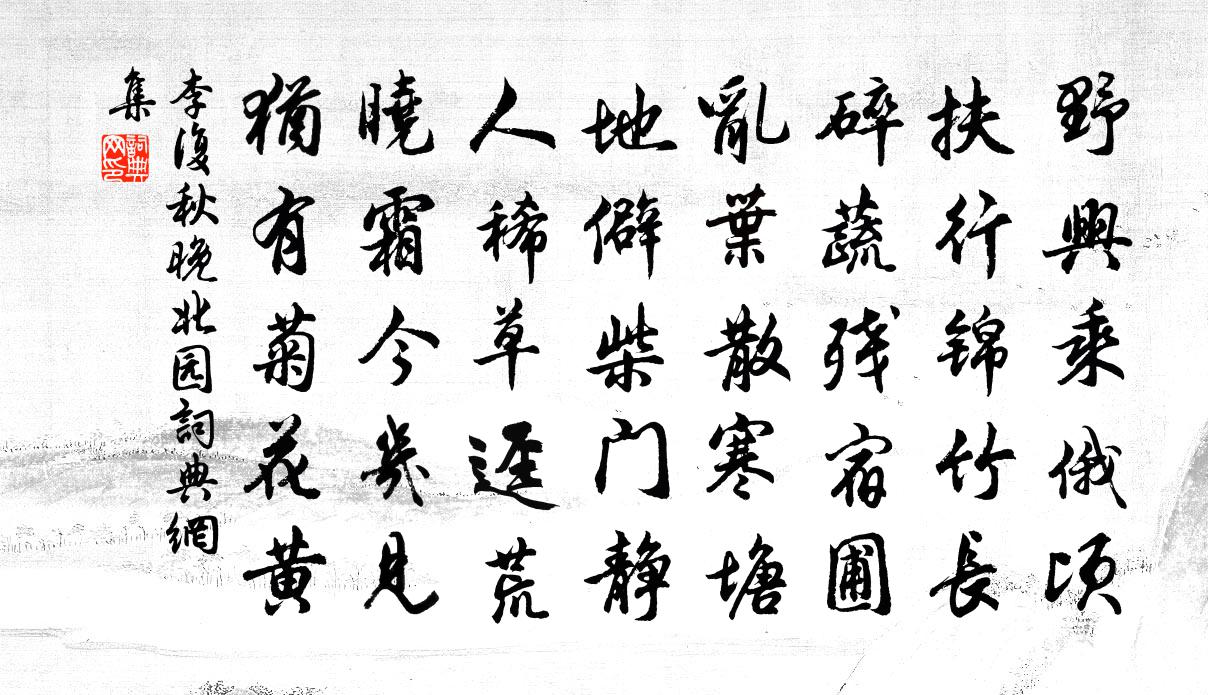 野興乘俄頃
扶行錦竹長
碎蔬残宿圃
亂葉散寒塘
地僻柴门静
人稀草迳荒
曉霜今幾見
猶有菊花黃
李復秋晚北园詞典網
集
詞典
网印